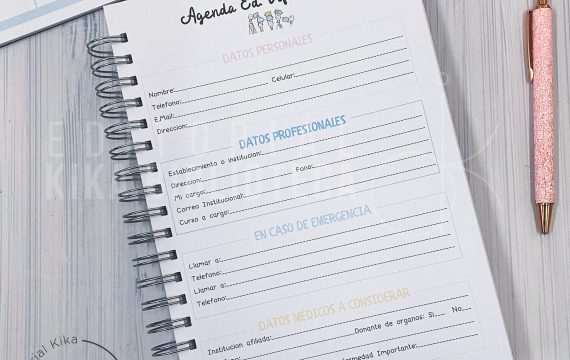 Agenda Ed.
DATOS PERSONALES
Nombre:
Celular:
Telefono:
E.Mail:
Direccion:
DATOS PROFESIONALES
Establecimiento o institucion:
Direccion:
Fono:
Mi cargo:
Correo Institucional:
Curso a cargo:
EN CASO DE EMERGENCIA
Llamar a:
Telefono:
Llamar a:
Telefono:
DATOS MÉDICOS A CONSIDERAR
Institucion afiliada:
Donante de organos: Si__ No__
Enfermedad Importante:
ial Kika